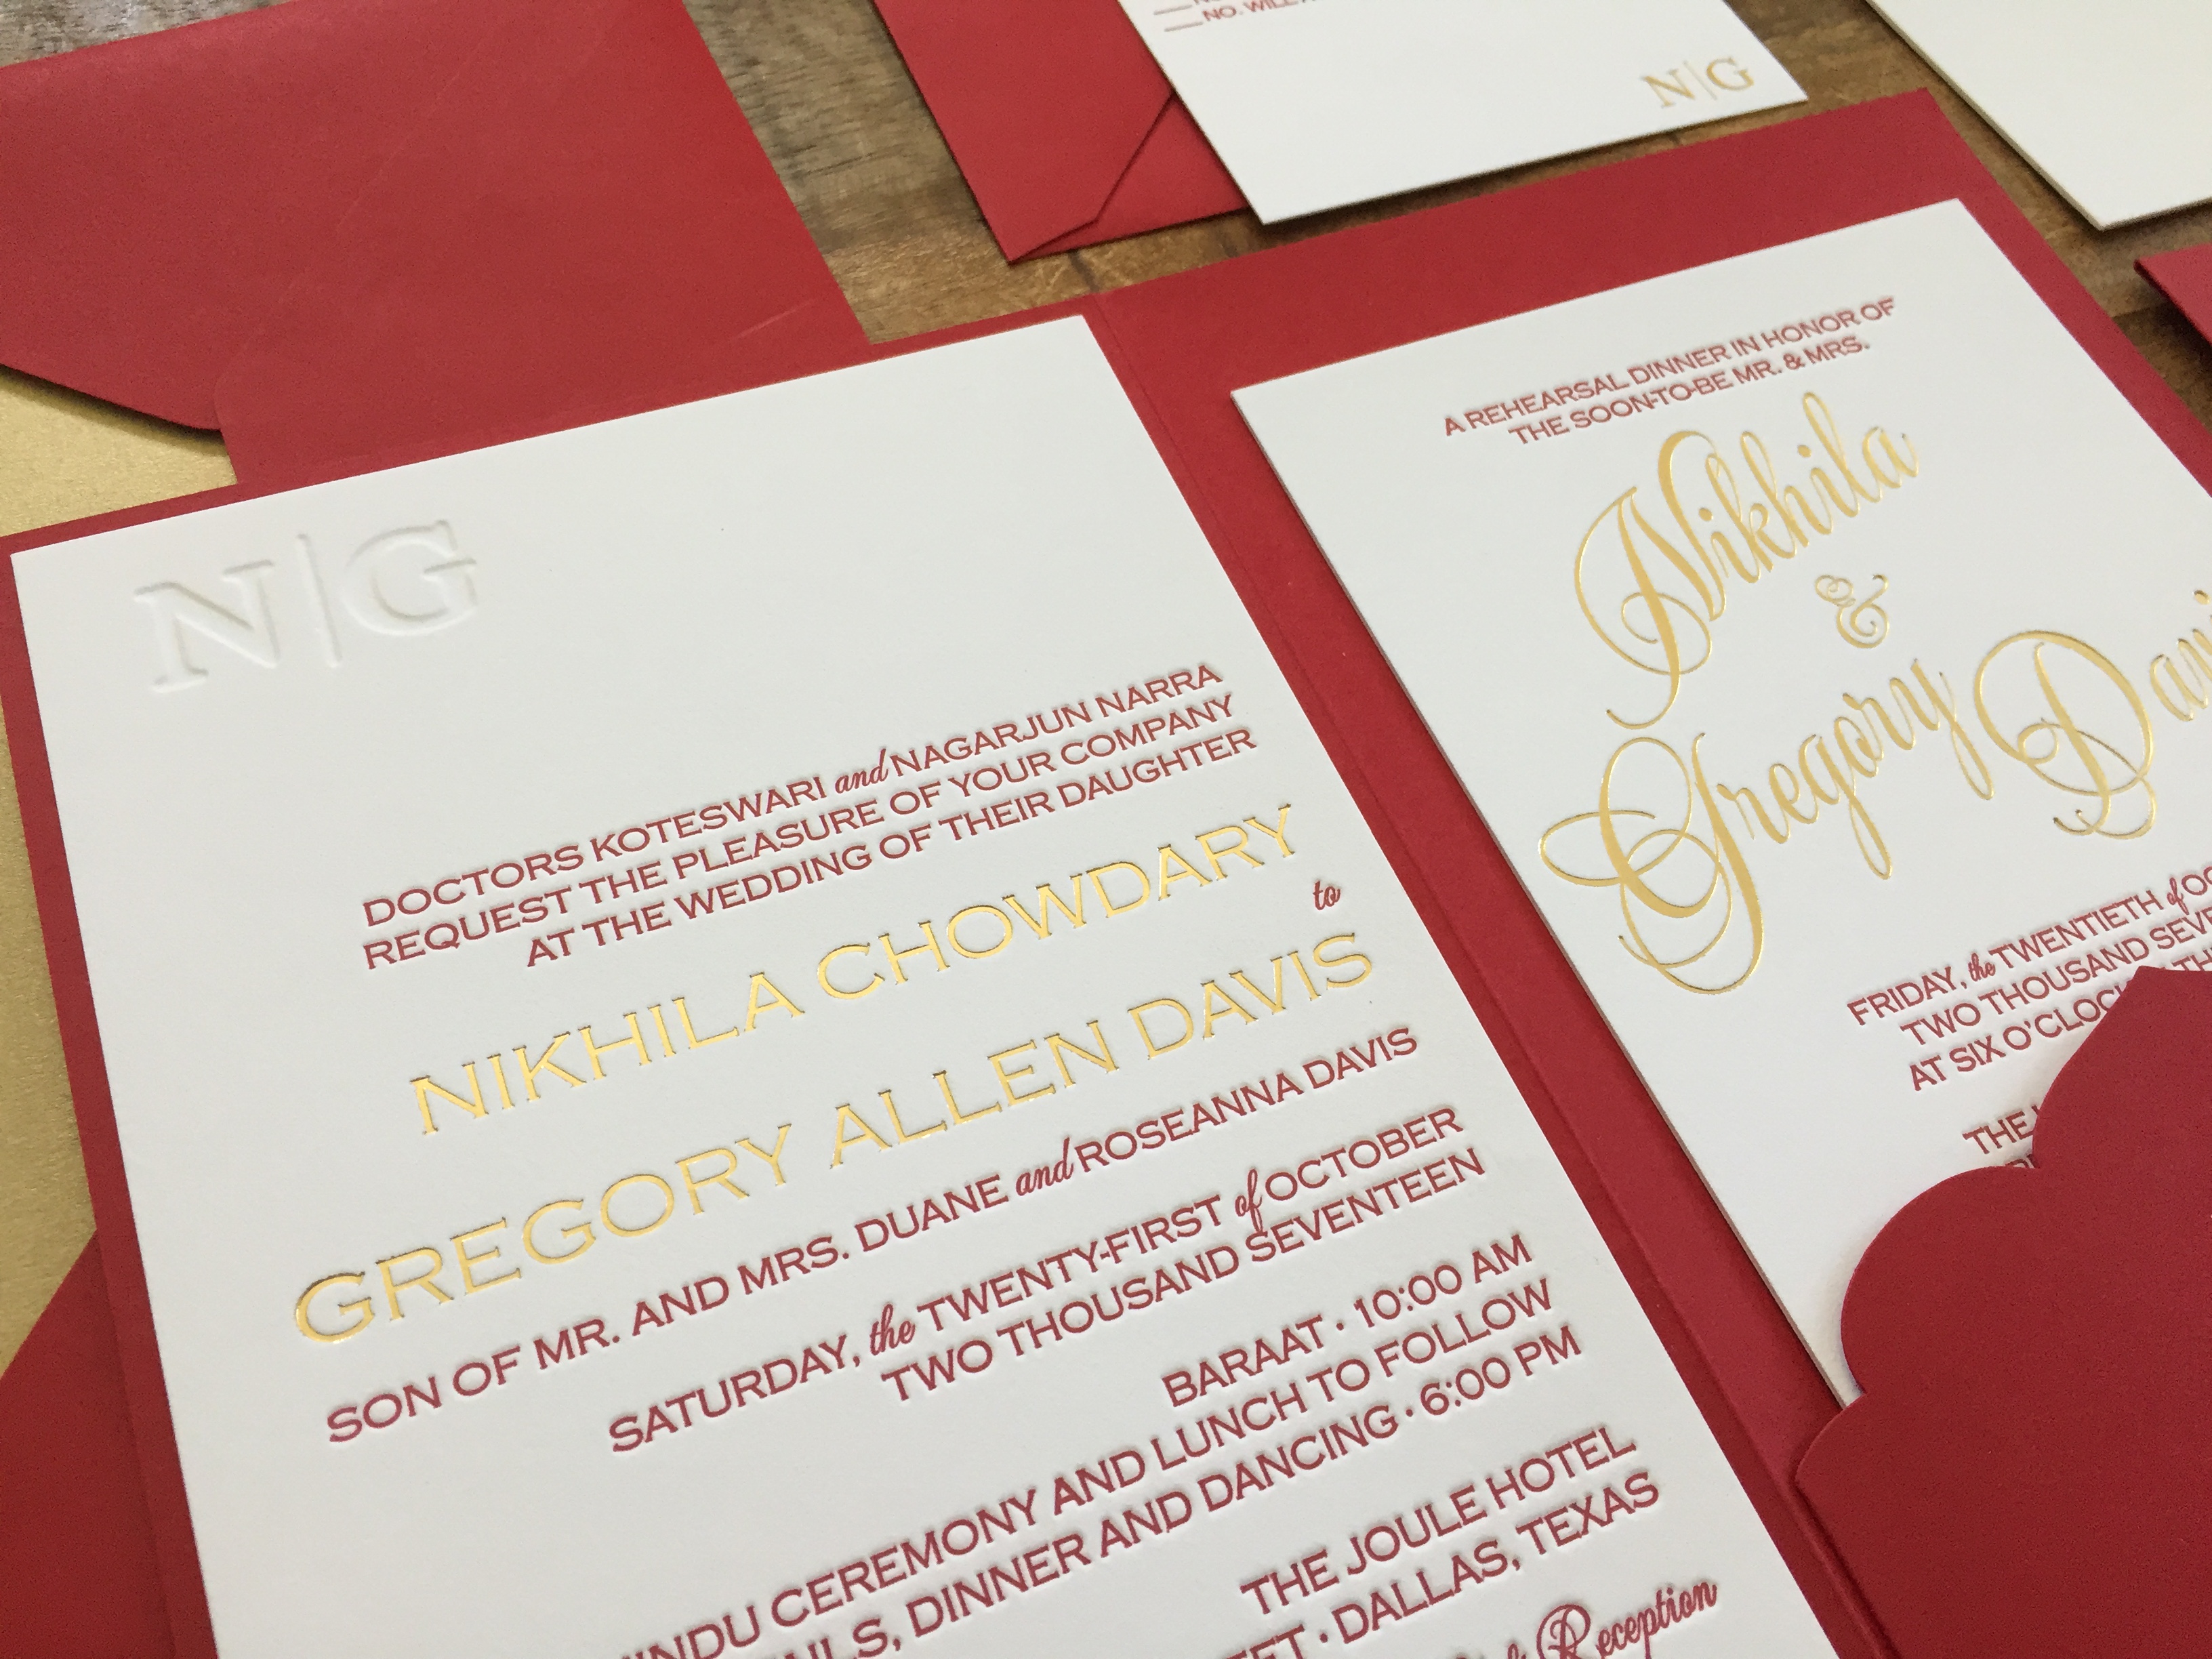 NO. WILL
N|G
N|G
DOCTORS KOTESWARI and NAGARJUN NARRA
REQUEST THE PLEASURE OF YOUR COMPANY
AT THE WEDDING OF THEIR DAUGHTER
NIKHILA CHOWDARY
to
GREGORY ALLEN DAVIS
SON OF MR. AND MRS. DUANE and ROSEANNA DAVIS
SATURDAY, the TWENTY-FIRST of OCTOBER
TWO THOUSAND SEVENTEEN
BARAAT · 10:00 AM
CEREMONY AND LUNCH TO FOLLOW
DINNER AND DANCING · 6:00 PM
THE JOULE HOTEL
· DALLAS, TEXAS
Reception
A REHEARSAL DINNER IN HONOR OF
THE SOON-TO-BE MR. & MRS.
Nikhila
&
Gregory
FRIDAY, the TWENTIETH of
TWO THOUSAND
AT SIX
THE